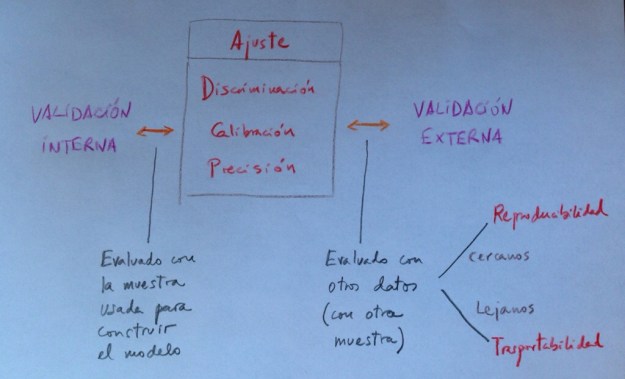 Ajuste
Discriminación
Calibración
Precisión
VALIDACIÓN
INTERNA
VALIDACIÓN
EXTERNA
Evaluado con
la muestra
usada para
construir
el modelo
Evaluado con
otros datos
(con otra
muestra)
Reproducibilidad
cercanos
Lejanos
Trasportabilidad